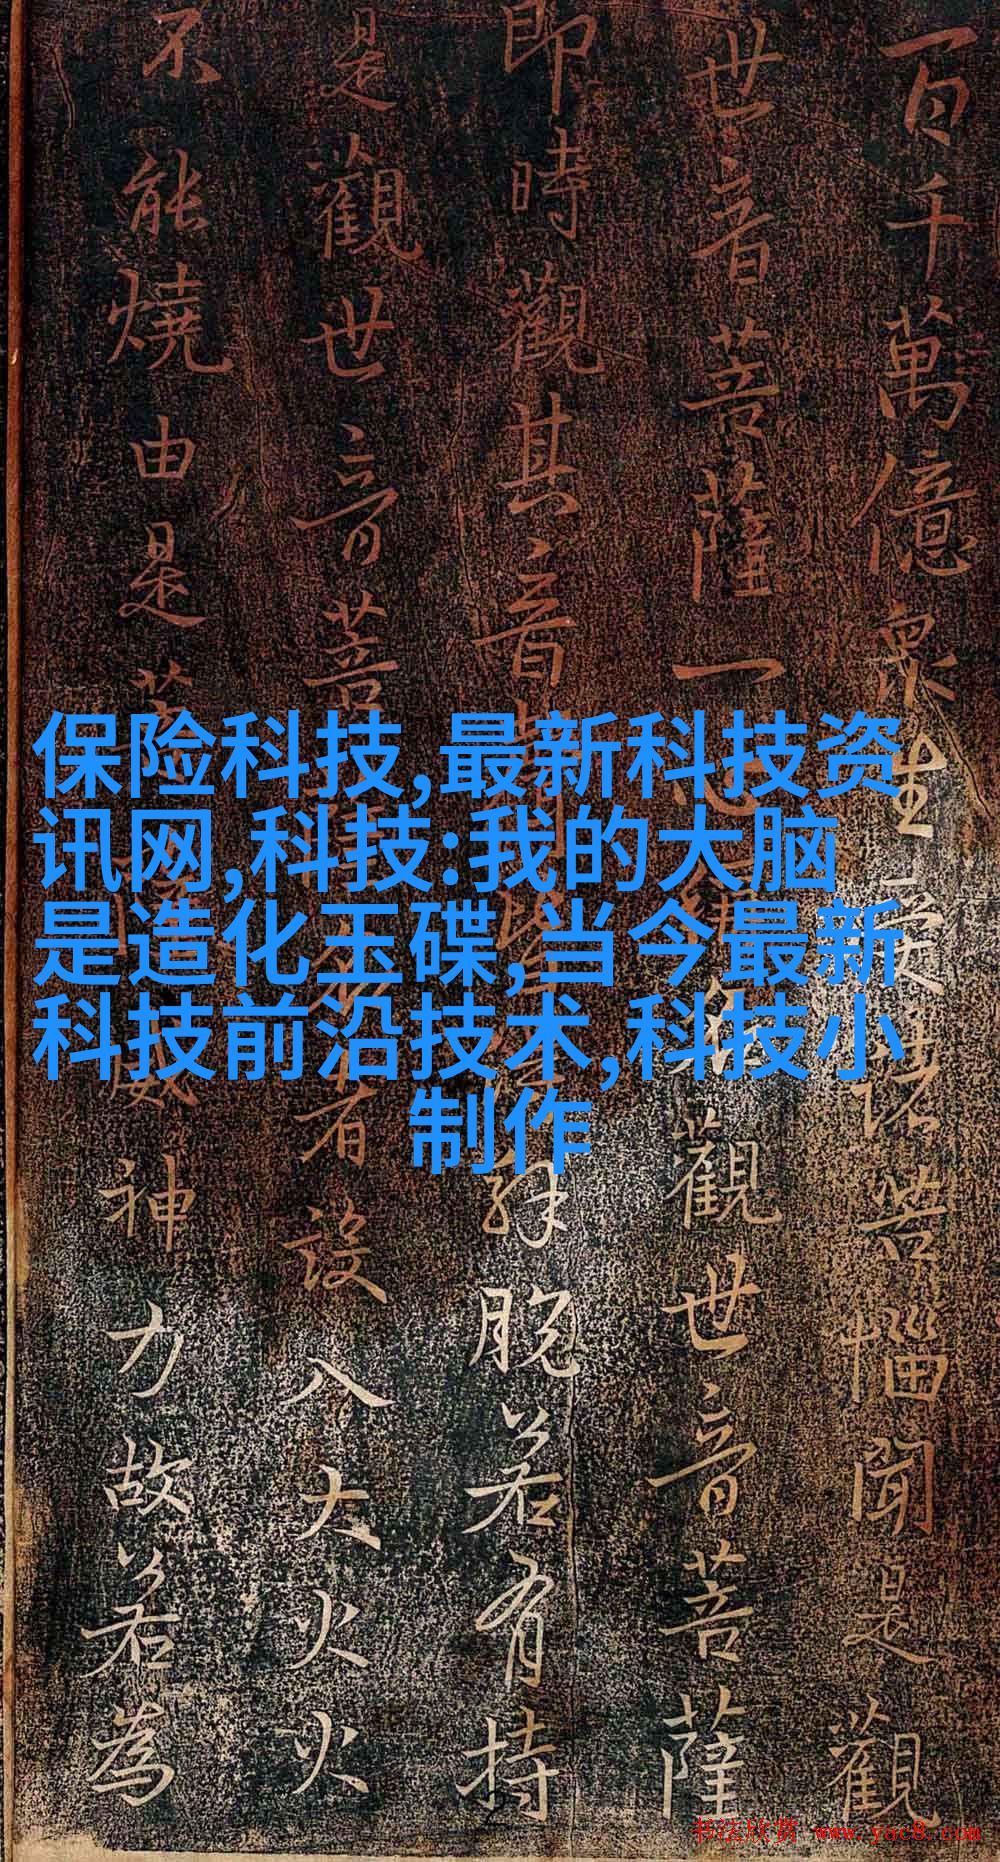 百千萬億眾生受諸苦惱聞是觀
世音菩薩一心觀世音菩薩
即時觀其音解脫若有持
是觀世音菩有設入大火火
不能燒由是菩威神力故若為
保险科技,最新科技资
讯网,科技:我的大脑
是造化玉碟,当今最新
科技前沿技术,科技小
制作
书法欣赏 www.yac8.com